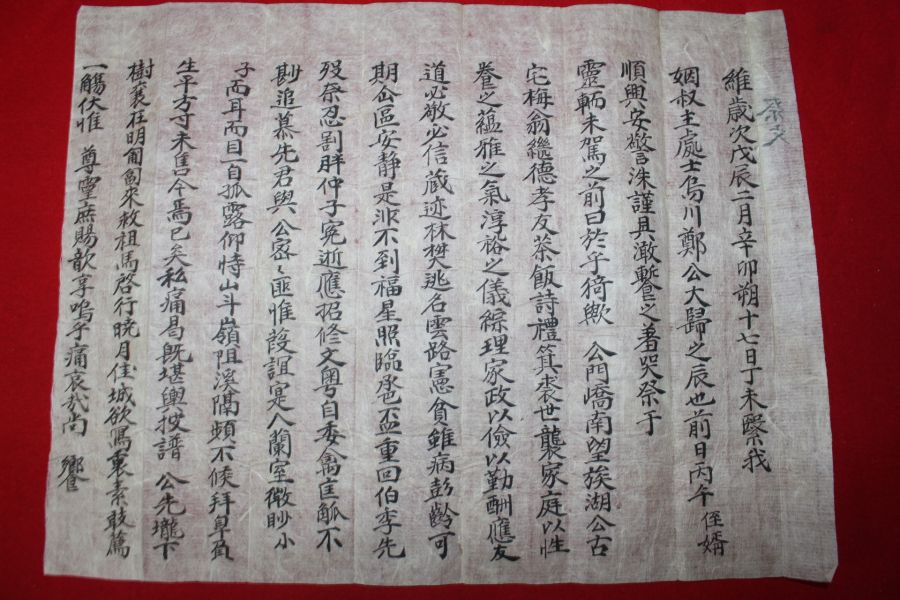 祭文
維歲次戊辰二月辛卯朔十七日丁未繄我
姻叔主處士烏川鄭公大歸之辰也前日丙午侄婿
順興安警洙謹具澉䜛之羞哭祭于
靈輀未駕之前曰於乎猗歟 公門嶠南望族湖公古
宅梅翁繼德孝友茶飯詩禮箕裘世襲家庭以性
養之蘊雅之氣淳裕之儀綜理家政以儉以勤酬應友
道必敬必信蔵迹林樊逃名雲路憲貧雖病彭齡可
期仚區安静是非不到福星照臨卺盃重回伯季先
歿奈忍割胖仲子冤逝應招修文粤自委禽匡觚不
尠追慕先君與公密〻匪惟葭誼寔入蘭室微眇小
子而耳而目一自孤露仰恃山斗嶺阻溪隔頻不候拜卑負
生平方寸未售今焉已矣私痛曷既堪輿按譜 公先壠下
樹蓑在明蔔匐來救祖馬啓行曉月佳城欲寫衷素敢薦
一觴伏惟 尊靈庶賜歆享嗚乎痛哀哉尚 饗